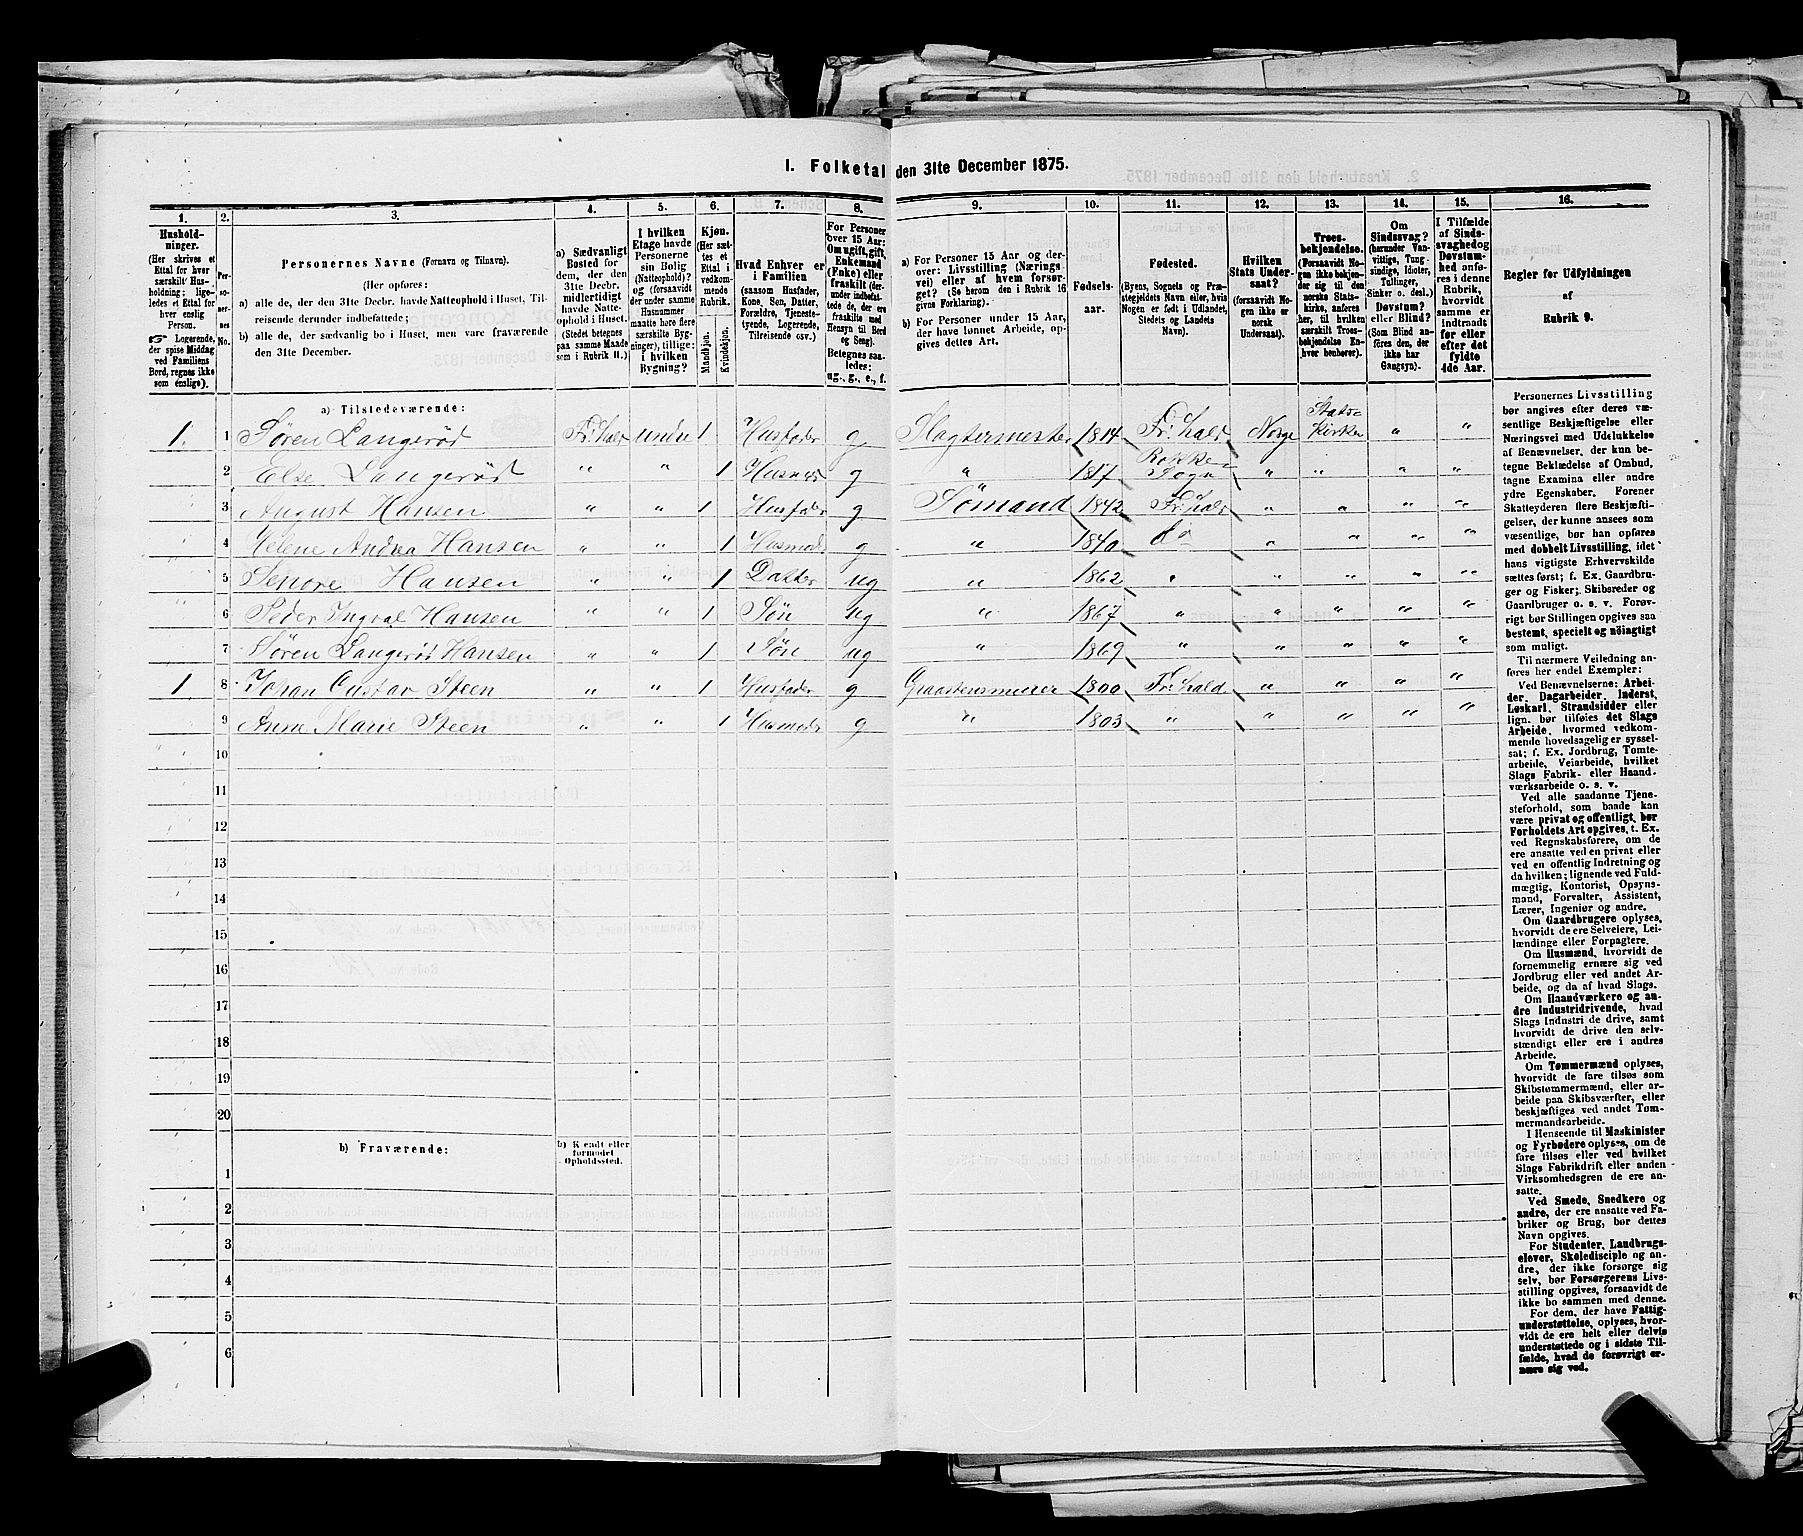 I. Folketal den 31te December 1875.
1. 2. 3. 4. 5. 6. 7. 8. 9. 10. 11. 12. 13. 14. 15. 16.
Hushold-
ninger.
(Her skrives et
Ettal for hver
særskilt Hus-
holdning; lige-
ledes et Ettal for
hver enslig
Person.
☞ Logerende,
der spise Middag
ved Familiens
Bord, regnes ikke
som enslige).
Per-
so-
ner-
nes
No.
Personernes Navne (Fornavn og Tilnavn).
(Her opføres:
a) alle de, der den 31te Decbr. havde Natteophold i Huset, Til-
reisende derunder indbefattede;
b) alle de, der sædvanlig bo i Huset, men vare fraværende
den 31te December.
a) Sædvanligt
Bosted for
dem, der den
31te Decbr.
midlertidigt
havde Natte-
ophold i Huset.
(Stedet betegnes
paa samme Maade
som i Rubrik 11.)
I hvilken
Etage havde
Personerne
sin Bolig
(Natteophold)?
(forsaavidt
der under samme
Husnummer
maatte høre flere
særskilte Byg-
ninger), tillige:
i hvilken
Bygning?
Kjøn.
(Her sæt-
tes et
Ettal i
vedkom-
mende
Rubrik.
Mandkjøn.
Kvindekjøn.
Hvad Enhver er
i Familien
(saasom Husfader,
Kone, Søn, Datter,
Forældre, Tjeneste-
tyende, Logerende,
Tilreisende osv.)
For Personer
over 15 Aar:
Om ugift, gift,
Enkemand
(Enke) eller
fraskilt (der-
under indbefat-
tede de, der ere
fraskilte med
Hensyn til Bord
og Seng).
Betegnes saa-
ledes:
ug., g., e., f.
a) For Personer 15 Aar og der-
over: Livsstilling (Nærings-
vei) eller af hvem forsør-
get? (Se herom den i Rubrik 16
givne Forklaring).
b) For Personer under 15 Aar,
der have lønnet Arbeide, op-
gives dettes Art.
Fødsels-
aar.
Fødested.
(Byens, Sognets og Præ-
stegjeldets Navn eller, hvis
Nogen er født i Udlandet,
Stedets og Landets
Navn).
Hvilken
Stats Under-
saat?
(forsaavidt No-
gen ikke er
norsk
Undersaat).
Troes-
bekjendelse.
(Forsaavidt No-
gen ikke bekjen-
der sig til den
norske Stats-
kirke, anføres
her, til hvilken
særskilt Troes-
bekjendelse En-
hver henhører).
Om
Sindssvag?
(herunder Van-
vittige, Tung-
sindige, Idioter,
Tullinger,
Sinker o. desl.)
Døvstum?
eller Blind?
(Som Blind an-
føres den, der
ikke har
Gangsyn).
I Tilfælde
af Sinds-
svaghed og
Døvstum-
hed anfø-
res i denne
Rubrik,
hvorvidt
samme er
indtraadt
før eller
efter det
fyldte
4de Aar.
Regler for Udfyldningen
af
Rubrik 9.
a) Tilstedeværende:
1. 1 Søren Langerød Fr: hald undn 1 Husfader g. Slagtermester 1814 Fr: hald Norge Stats- Kirken " "
2 Else Langerød " " 1 Husmor g " 1817 Rokke Sogn " " " "
3 August Hansen " " 1 Husfader g Sømand 1842 Fr: hald " " " "
4 Helene Andrea Hansen " " 1 Husmoder g " 1840 do " " " "
5 Hansen " " 1 Datter ug " 1862 " " " " "
6 Peder Ingval Hansen " " 1 Søn ug " 1867 " " " " "
7 Søren Langerød Hansen " " 1 Søn ug " 1869 " " " " "
1 8 Johan Gustav Steen " " 1 Husfader g Graastensmurer 1800 Fr: hald " " " "
9 Anne Marie Steen " " 1 Husmoder g " 1803 " " " " "
10
11
12
13
14
15
16
17
18
19
20
b) Fraværende:
b) Kjendt eller
formodet
Opholdssted.
1
2
3
4
5
6
Personernes Livsstilling
bør angives efter deres væ-
sentlige Beskjæftigelse eller
Næringsvei med Udelukkelse
af Benævnelser, der kun be-
tegne Beklædelse af Ombud,
tagne Examina eller andre
ydre Egenskaber. Forener
Skatteyderen flere Beskjæfti-
gelser, der kunne ansees som
væsentlige, bør han opføres
med dobbelt Livsstilling, idet
hans vigtigste Erhvervskilde
sættes først; f. Ex. Gaardbru-
ger og Fisker; Skibsreder og
Gaardbruger o. s. v. Forøv-
rigt bør Stillingen opgives saa
bestemt, specielt og nöiagtigt
som muligt.
Til nærmere Veiledning an-
føres her endel Exempler:
Ved Benævnelserne: Arbei-
der, Dagarbeider, Inderst,
Løskarl, Strandsidder eller
lign. bør tilføies det Slags
Arbeide, hvormed vedkom-
mende hovedsagelig er syssel-
sat; f. Ex. Jordbrug, Tomte-
arbeide, Veiarbeide, hvilket
Slags Fabrik- eller Haand-
værksarbeide o. s. v.
Ved alle saadanne Tjene-
steforhold, som baade kan
være privat og offentligt, bør
Forholdets Art opgives, t. Ex.
ved Regnskabsførere, om de
ere ansatte ved en privat eller
ved en offentlig Indretning og
da hvilken; lignende ved Fuld-
mægtig, Kontorist, Opsyns-
mand, Forvalter, Assistent,
Lærer, Ingeniør og andre.
Om Gaardbrugere oplyses,
hvorvidt de ere Selveiere, Lei-
lændinge eller Forpagtere.
Om Husmænd, hvorvidt de
fornemmelig ernære sig ved
Jordbrug eller ved andet Ar-
beide, og da af hvad Slags.
Om Haandværkere og an-
dre Industridrivende, hvad
Slags Industri de drive, samt
hvorvidt de drive den selv-
stændigt eller ere i andres
Arbeide.
Om Tømmermænd oplyses,
hvorvidt de fare tilsøs som
Skibstømmermænd, eller ar-
beide paa Skibsværfter, eller
beskjæftiges ved andet Tøm-
mermandsarbeide.
I Henseende til Maskinister
og Fyrbødere oplyses, om de
fare tilsøs eller ved hvilket
Slags Fabrikdrift eller anden
Virksomhedsgren de ere an-
satte.
Ved Smede, Snedkere og
andre, der ere ansatte ved Fa-
briker og Brug, bør dettes
Navn opgives.
For Studenter, Landbrugs-
elever, Skoledisciple og an-
dre, der ikke forsørge sig
selv, bør Forsørgerens Livs-
stilling opgives, forsaavidt de
ikke bo sammen med denne.
For dem, der have Fattig-
understøttelse, oplyses, hvor-
vidt de ere helt eller delvis
understøttede og i sidste Til-
fælde, hvad de forøvrigt er-
nære sig ved.